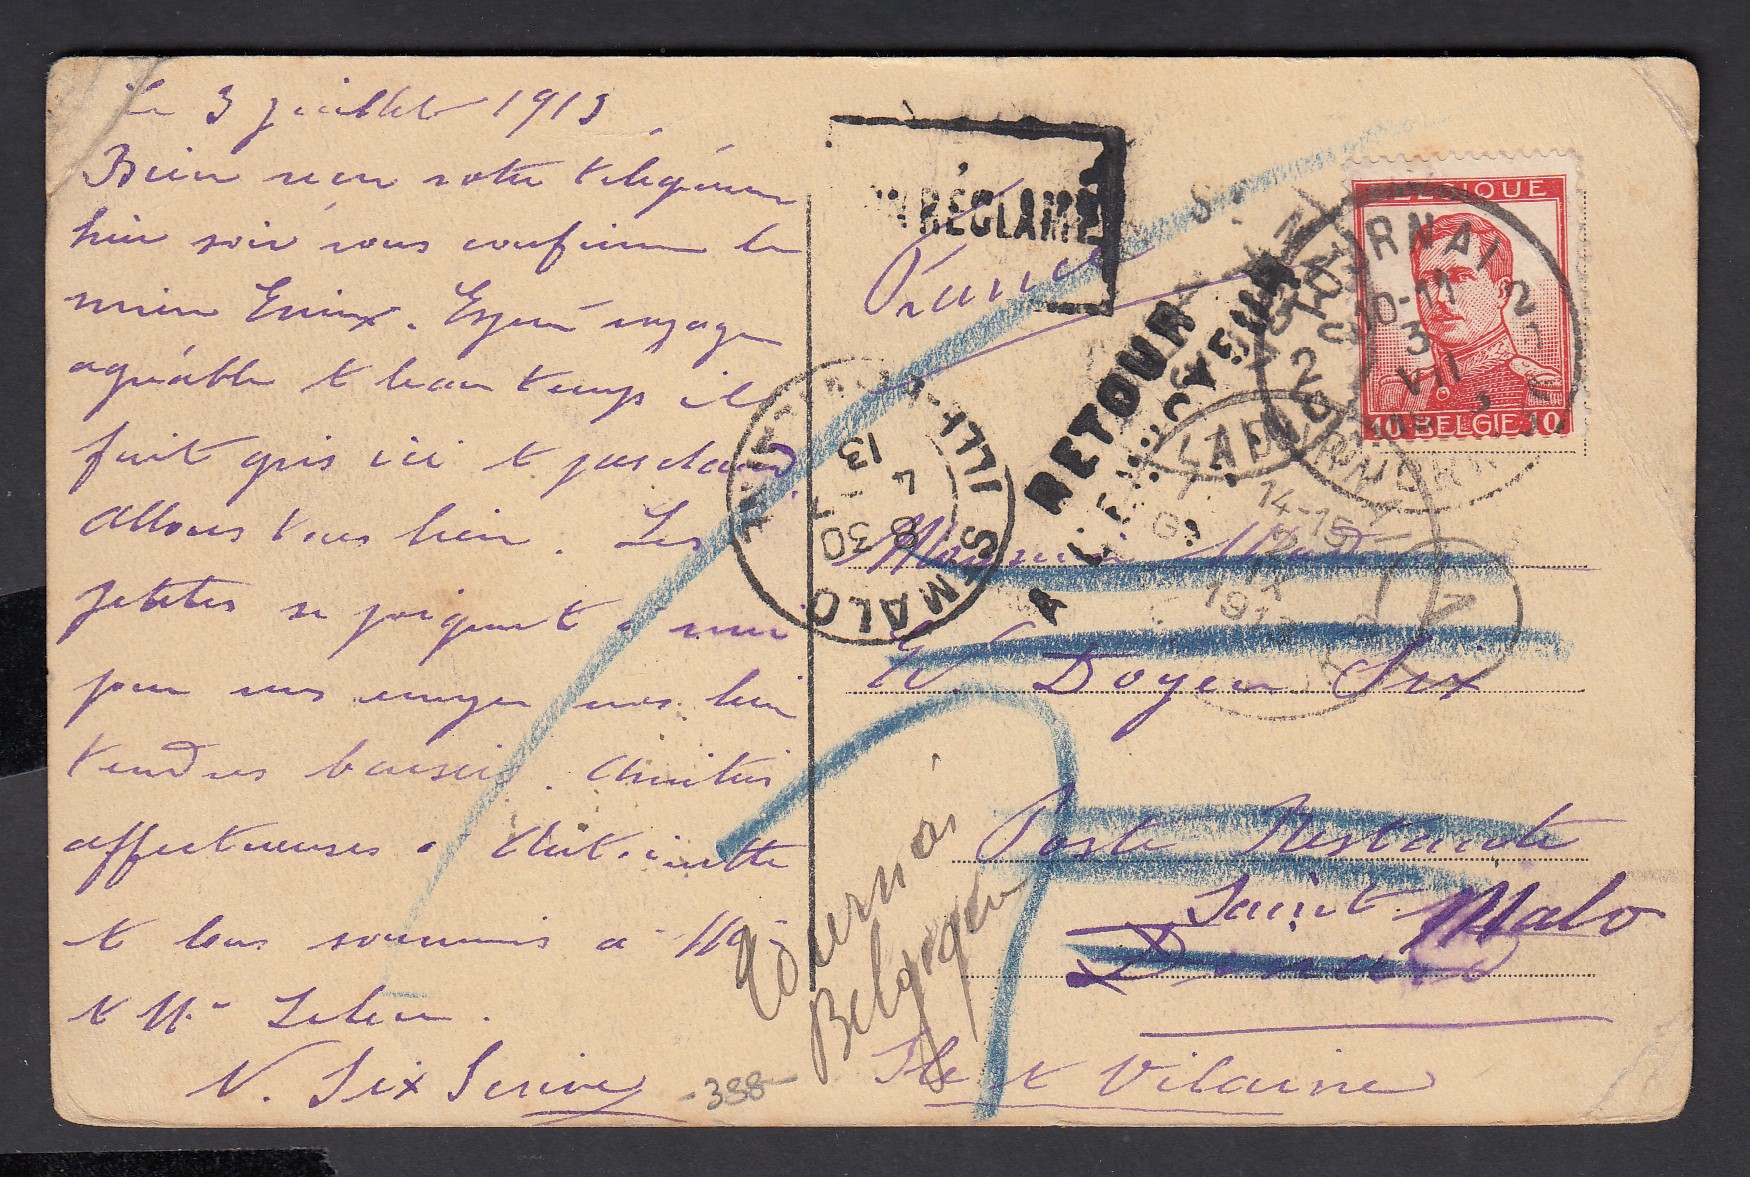 Le 3 juillet 1913
Bien reçu votre télégramme
hier soir vous confirme le
mien Esijux. Espère voyage
agréable et beau temps il
fait gris ici et
Allons tous bien. Les
petites se joignent à moi
pour vous envoyer nos bien
tendres baisers. Amitiés
affectueuses à Antoinette
et bons souvenirs à Mr
et Mme
V. Six Scrive
NON RÉCLAMÉ
France
RETOUR
A L'ENVOYEUR
BELGIQUE
10 BELGIE 10
TOURNAI 2
10-11
3
VII
ST MALO
ILLE-ET-VILAINE
8 30
4 - 7
13
14-15
IX
1913
Monsieur
Doyen Six
Poste Restante
Saint Malo
Dinard
Ille et Vilaine
Tournai
Belgique
-388-